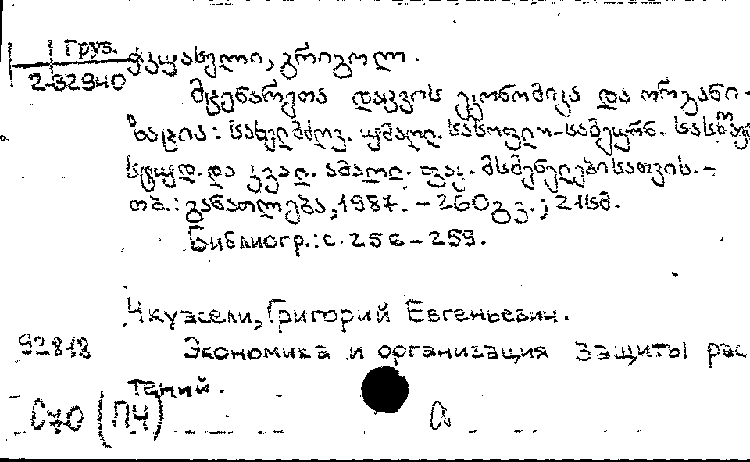 Груз.
2-32940
ჭკუასელი, გრიგოლ.
მცენარეთა დაცვის ეკონომიკა და ორგანი-
ზაცია: სახელმძღვ. უმაღლ. სასოფლო-სამეურნ. სასწავ
სტუდ. და კვალ. ამაღლ. ფაკ. მსმენელებისათვის. –
თბ.: განათლება, 1987. – 260 გვ.; 21 სმ.
Библиогр.: с. 256–259.
Чкуасели, Григорий Евгеньевич.
92818
Экономика и организация защиты рас
тений.
С70 (ПЧ)
а